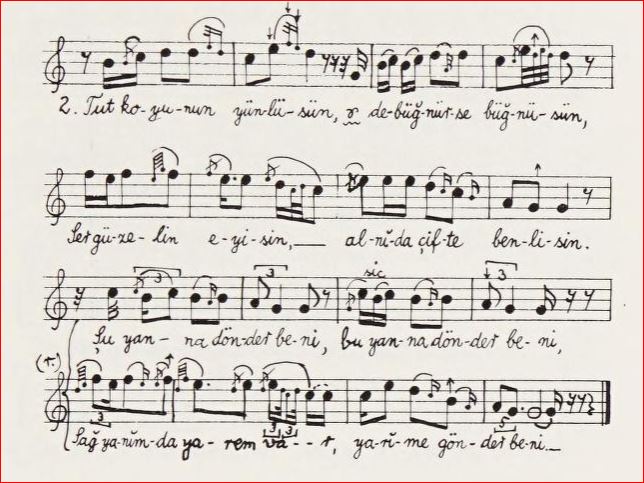 2. Tut ko-yu-nun yün-lü-sün, ɤ de-büğ-nür-se büğ-nü-sün,
Seř gü-ze-lin e-yi-sin,__ al-nı̆-da çif-te ben-li-sin.
3 3 sic 3
Şu yan-na dön-deř be-ni, bu yan-na dön-deř be-ni,
(1.)
Sağ ya-nı̆m-da ya-rem va--ř, ya-rı̆-me gön-deř be-ni__
3 3 3 5